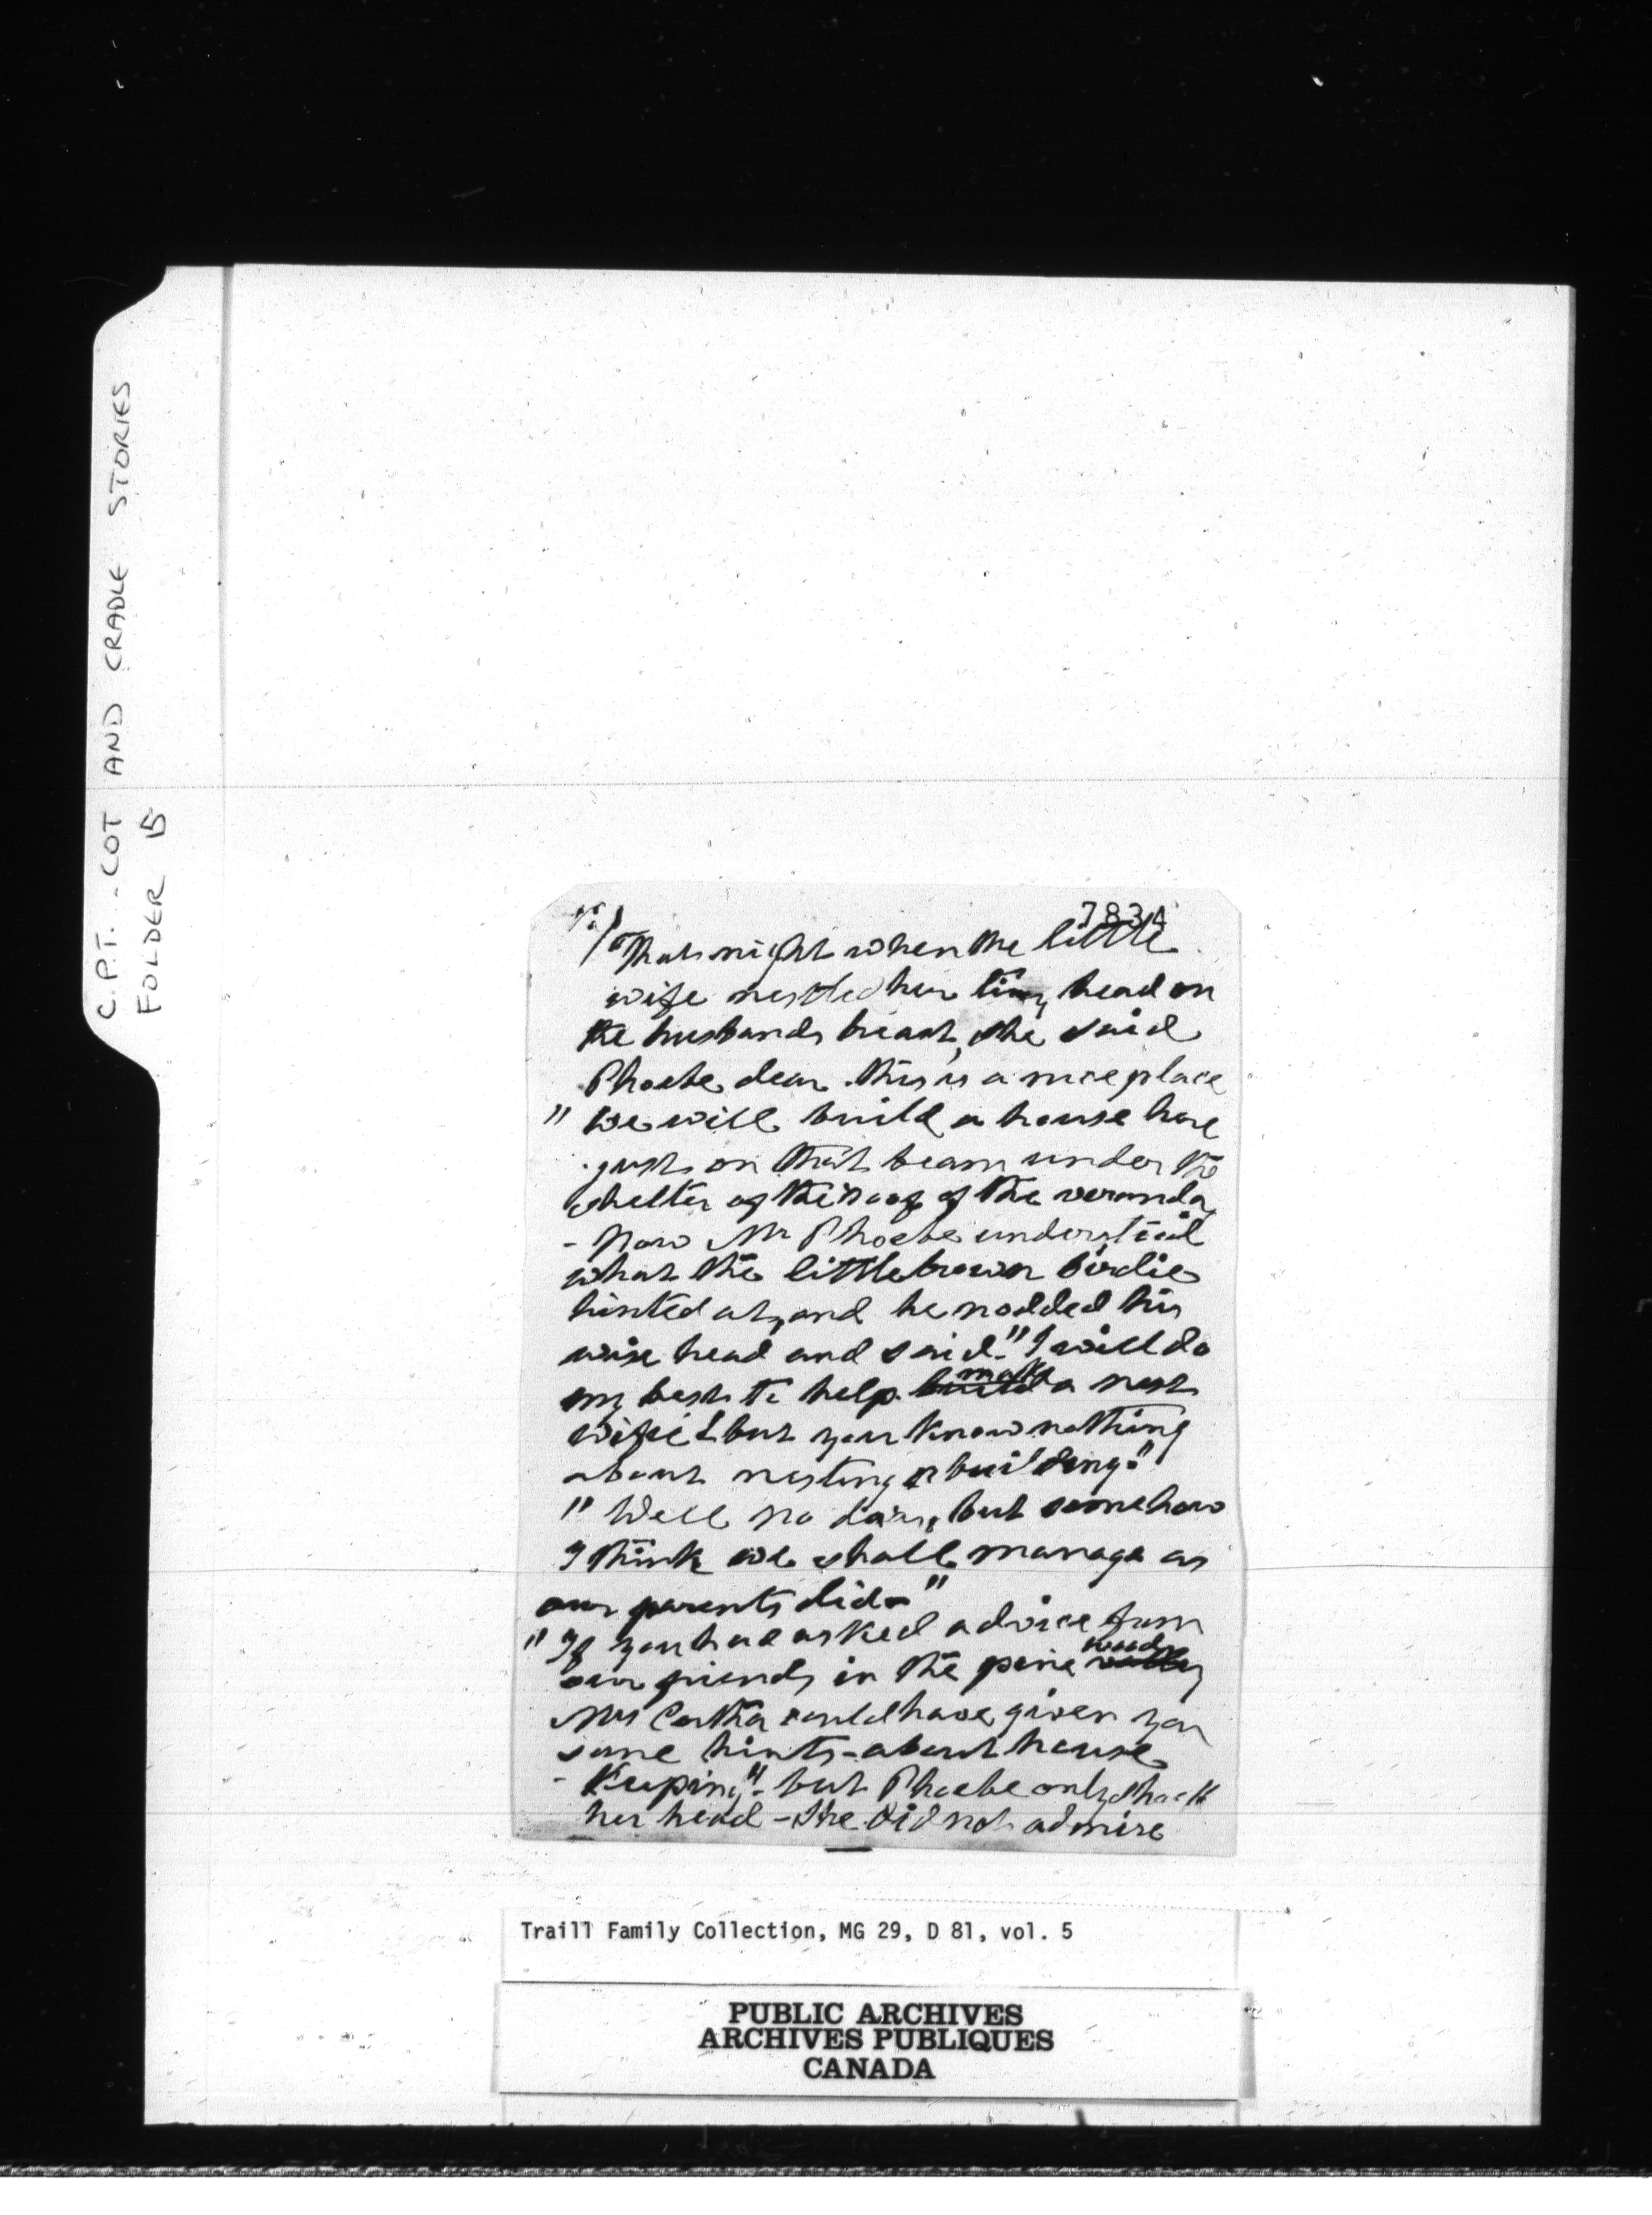 C.P.T. - COT AND CRADLE STORIES
FOLDER 15
7834
That night when the little
wife nestled her tiny head on
the husbands breast, she said
Phoebe dear this is a nice place
" We will build a house here
just on that beam under the
shelter of the roof of the veranda
- Now Mr Phoebe understood
what the little brown birdie
hinted at, and he nodded his
wise head and said - " I will do
my best to help build make a nest
wifie & but you know nothing
about nesting or building - "
" Well no dear, but somehow
I think we shall manage as
our parents did - "
" If you had asked advice from
our friends in the pine wood
Mrs could have given you
some hints - about house
- Keeping " - but Phoebe only shook
her head - She did not admire
Traill Family Collection, MG 29, D 81, vol. 5
PUBLIC ARCHIVES
ARCHIVES PUBLIQUES
CANADA